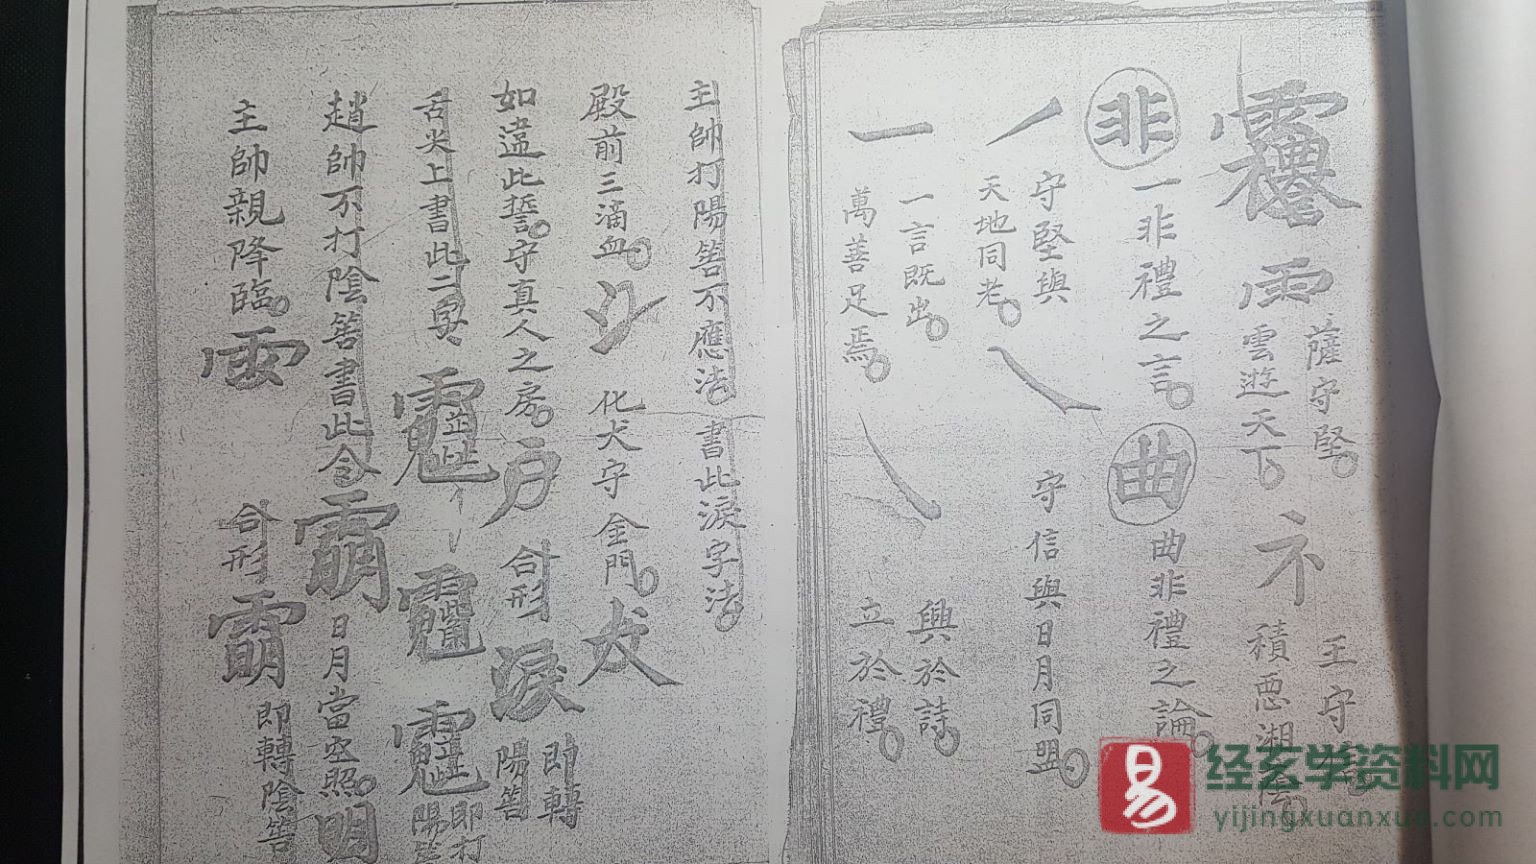 雨
薩守堅
雲遊天下
礻
王守
積惡湘陰
非
一非禮之言
曲
曲非禮之論
丿
守堅與
天地同老
㇏
守信與日月同盟
一
一言既出
萬善足焉
㇏
興於詩
立於禮
主帥打陽筶不應法書此淚字法
殿前三滴血
化犬守金門
犬
如違此誓守真人之房
戶
合形
淚
即轉
陽筶
舌尖上書此二字
即打
陽筶
趙帥不打陰筶書此令
日月當空照
明
主帥親降臨
合形
即轉陰筶
易
经玄学资料网
yijingxuanxue.com